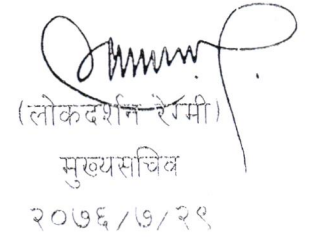 (लोकदर्शन रेग्मी)
मुख्यसचिव
२०७६/७/२९